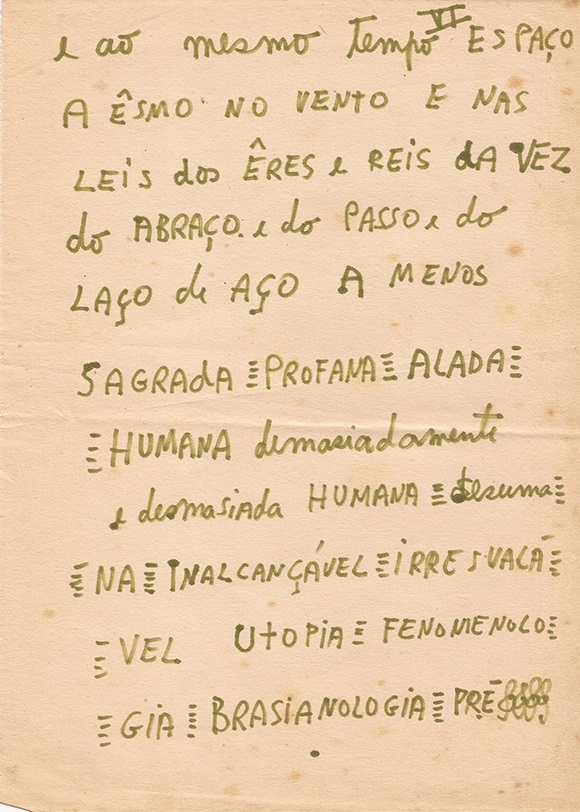 VI
e ao mesmo tempo ESPAÇO
A ÊSMO NO VENTO E NAS
LEIS dos ÊRES e REIS dA VEZ
do ABRAÇO. e do PASSO e do
LAÇO de AÇO A MENOS
SAGRAdA ≡ PROFANA ≡ ALADA ≡
≡ HUMANA demasiadamente
e desmasiada HUMANA ≡ desuma ≡
≡ NA ≡ INALCANÇÁVEL ≡ IRRESVALÁ ≡
≡ VEL UtOPIA ≡ FENOMENOLO ≡
≡ GIA ≡ BRASIANOLOGIA ≡ PRÉ